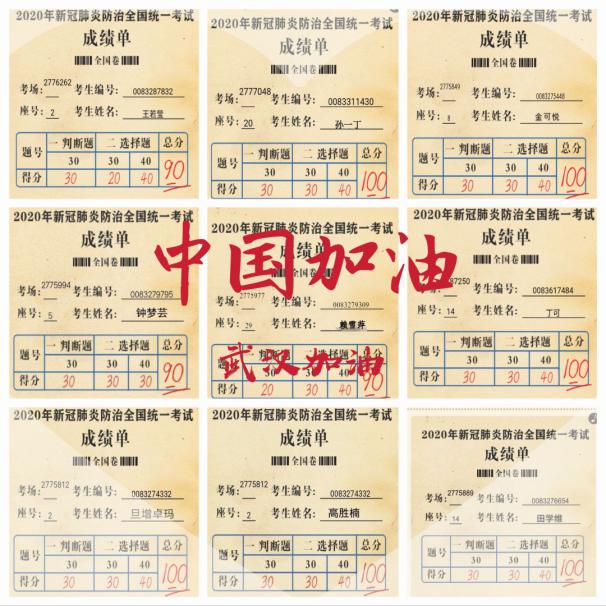 2020年新冠肺炎防治全国统一考试
成绩单
全国卷
考场: 2776262 考生编号: 0083287832
座号: 2 考生姓名: 王若莹
题号 一 判断题 二 选择题 总分
30 30 40
得分 30 20 40 90
2020年新冠肺炎防治全国统一考试
成绩单
全国卷
考场: 2777048 考生编号: 0083311430
座号: 20 考生姓名: 孙一丁
题号 一 判断题 二 选择题 总分
30 30 40
得分 30 30 40 100
2020年新冠肺炎防治全国统一考试
成绩单
全国卷
考场: 2775849 考生编号: 0083275448
座号: 8 考生姓名: 金可悦
题号 一 判断题 二 选择题 总分
30 30 40
得分 30 30 40 100
2020年新冠肺炎防治全国统一考试
成绩单
全国卷
考场: 2775994 考生编号: 0083279795
座号: 5 考生姓名: 钟梦芸
题号 一 判断题 二 选择题 总分
30 30 40
得分 30 30 30 90
2020年新冠肺炎防治全国统一考试
成绩单
全国卷
考生编号: 0083279309
座号: 29 考生姓名: 赖雪萍
题号 一 判断题 二 选择题 总分
30 30 40
得分 20 30 40 90
2020年新冠肺炎防治全国统一考试
成绩单
全国卷
87250 考生编号: 0083617484
座号: 14 考生姓名: 丁可
题号 一 判断题 二 选择题 总分
30 30 40
得分 30 30 40 100
中国加油
武汉加油
2020年新冠肺炎防治全国统一考试
成绩单
全国卷
考场: 2775812 考生编号: 0083274332
座号: 2 考生姓名: 旦增卓玛
题号 一 判断题 二 选择题 总分
30 30 40
得分 30 30 40 100
2020年新冠肺炎防治全国统一考试
成绩单
全国卷
考场: 2775812 考生编号: 0083274332
座号: 2 考生姓名: 高胜楠
题号 一 判断题 二 选择题 总分
30 30 40
得分 30 30 40 100
2020年新冠肺炎防治全国统一考试
成绩单
全国卷
考场: 2775869 考生编号: 0083276654
座号: 14 考生姓名: 田学维
题号 一 判断题 二 选择题 总分
30 30 40
得分 30 30 40 100